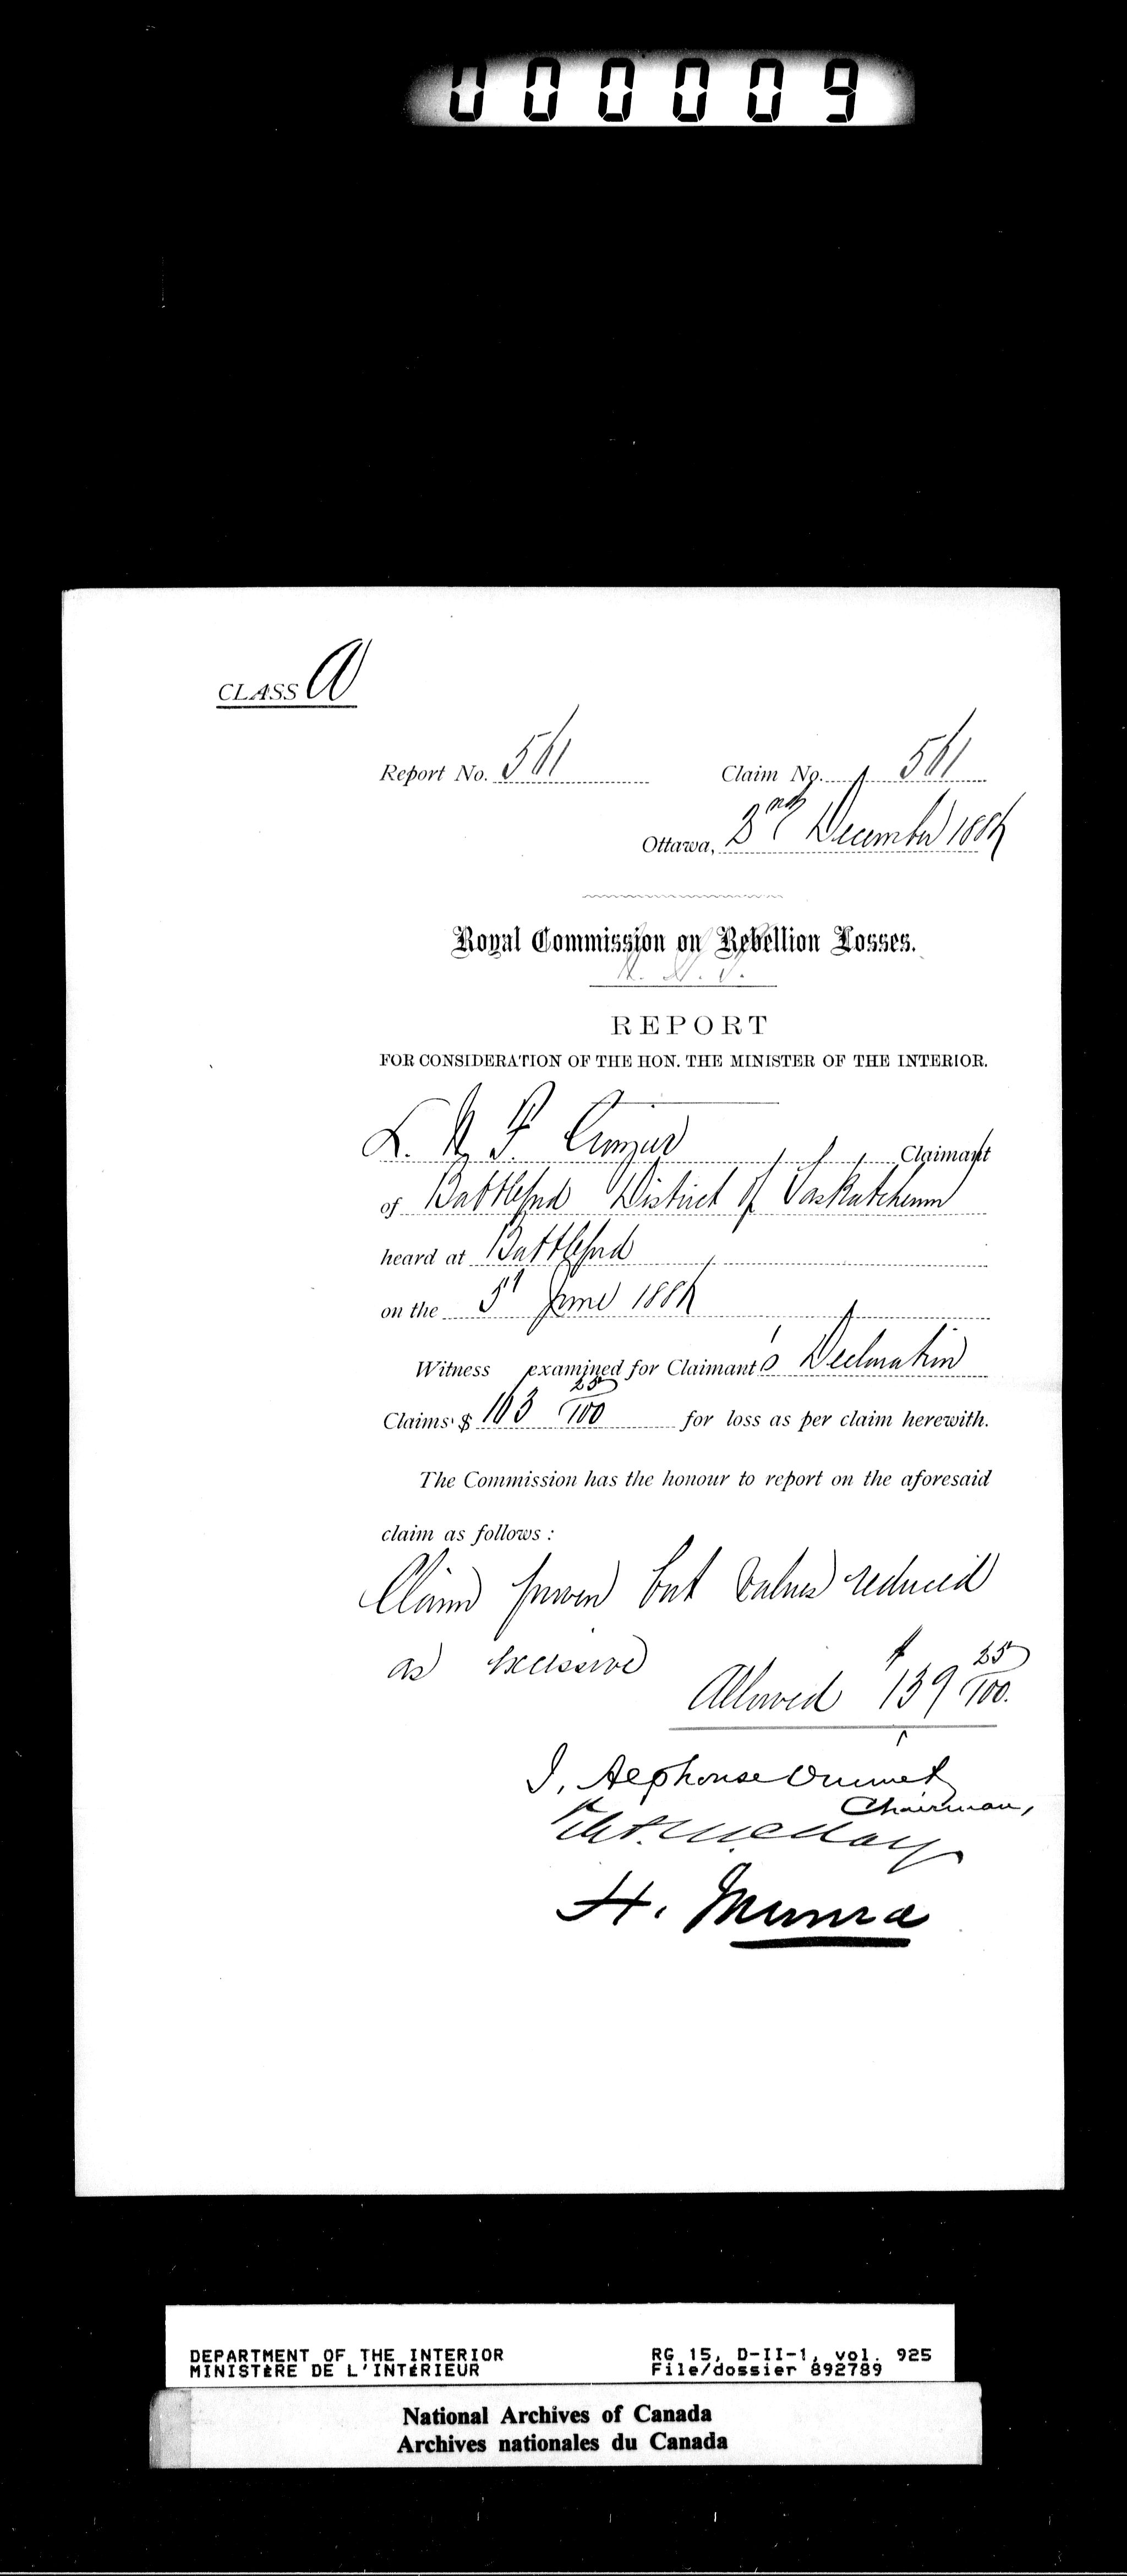 000009
CLASS A
Report No. 561 Claim No. 561
Ottawa, 2nd December 1886
Royal Commission on Rebellion Losses.
REPORT
FOR CONSIDERATION OF THE HON. THE MINISTER OF THE INTERIOR.
L. N. F. Crozier Claimant
of Battleford District of Saskatchewan
heard at Battleford
on the 5th June 1886
Witness examined for Claimant's Declaration
Claims $ 163 25/100 for loss as per claim herewith.
The Commission has the honour to report on the aforesaid
claim as follows:
Claim proven but values reduced
as excessive
Allowed $139 25/100.
J, Alphonse Ouimet
Chairman,
H. Munro
DEPARTMENT OF THE INTERIOR RG 15, D-II-1, vol. 925
MINISTÈRE DE L'INTÉRIEUR File/dossier 892789
National Archives of Canada
Archives nationales du Canada